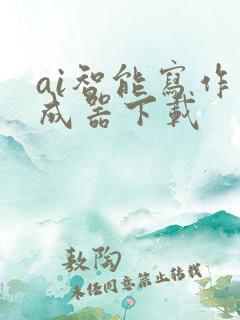 ai智能寫作
成器下載
敖陶
未經同意禁止轉載